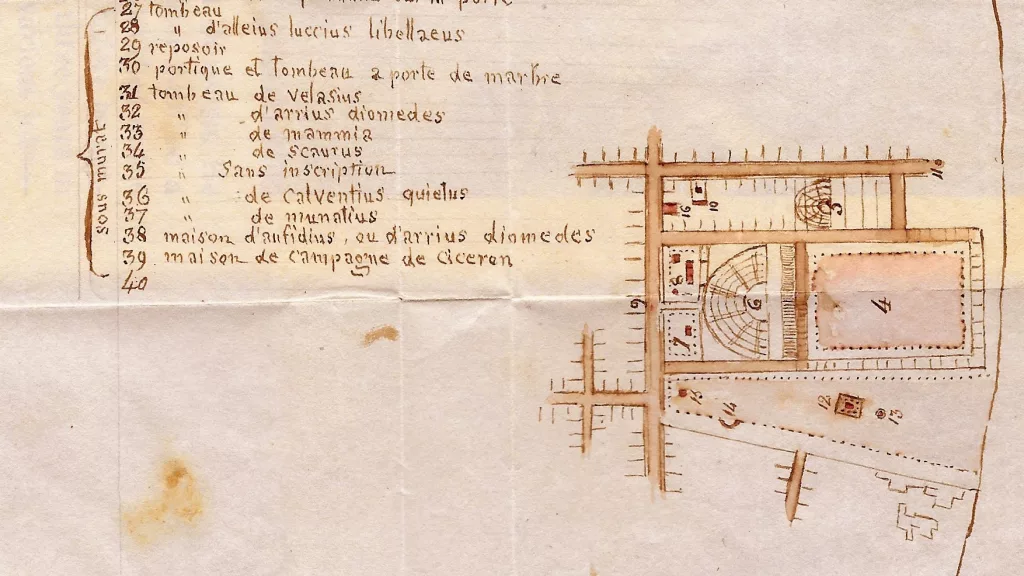 27 tombeau
28 " d'alleius luccius libellaeus
29 reposoir
30 portique et tombeau a porte de marbre
31 tombeau de velasius
32 " d'arrius diomedes
33 " de mammia
34 " de scaurus
35 " sans inscription
36 " de calventius quietus
37 " de munatius
38 maison d'aufidius, ou d'arrius diomedes
39 maison de campagne de ciceron
40
sous murat
11
16
10
5
9
8
6
4
7
15
14
12
13